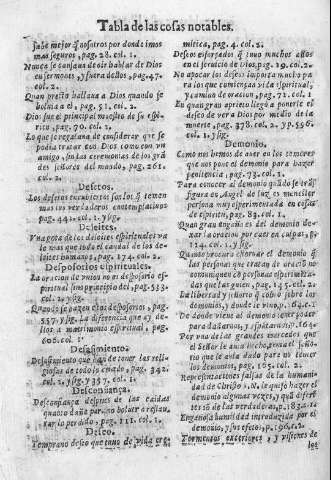 Tabla de las cosas notables.
sabe mejor q̃ nosotros por donde imos
mas seguros, pag. 28. col. 1.
Nunca se cansaua de oir hablar de Dios
en sermones, y fuera dellos, pag. 47.
col. 2.
Quan presto hallaua a Dios quando se
boluia a el, pag. 51. col. 2.
Dios fue el principal maestro de su espi-
ritu, pag. 70. col. 2.
Lo que se regalaua de considerar que se
podia tratar con Dios como con vn
amigo, sin las ceremonias de los grã
des señores del mundo, pag. 261.
col. 2.
Defetos.
mas los verdaderos contemplatiuos
pag. 441. col. 1. y sig.
Deleites.
Vna gota de los deleites espirituales va
le mas que todo el caudal de los de-
leites humanos, pag. 174. col. 2.
Desposorios espirituales.
La oracion de vnion no es desposorio es-
piritual sino principio del, pag. 533.
col. 2. y sig.
Quando se hazen estos desposorios, pag.
557. y sig. La diferencia que ay de-
llos al matrimonio espiritual, pag.
606. col. 1.
Desasimiento.
Desasimiento que han de tener las reli-
giosas de todo lo criado, pag. 342.
col. 2. y sig. y 357. col. 1.
Desconfiança.
Desconfiança despues de las caidas
quanto daño para no boluer a restau-
rar lo perdido, pag. 111. col. 1.
Deseo.
Temprano deseo que tuuo de vida ere-
mitica, pag. 4. col. 2.
Deseos esforçados q̃ tuuo muchos años
en el seruicio de Dios, pag. 19. col. 2.
No apocar los deseos importa mucho pa
ra los que comiençan vida espiritual,
y camino de oracion, pag. 72. col. 1
En quan gran aprieto llegò a ponerle el
deseo de ver a Dios por medio de la
muerte, pag. 378. col. 2. y p. 596.
col. 1. y sig.
Demonio.
Como nos hemos de auer en los temores
que nos pone el demonio para hazer
penitencia, pag. 73. col. 1.
Para conocer al demonio quãdo se trãs-
figura en Angel de luz es menester
persona muy experimentada en cosas
de espiritu, pag. 83. col. 1.
Quan gran engaño es del demonio de-
xar la oracion por caer en culpas, p.
114. col. 1. y sig.
Quanto procura estoruar el demonio q̃
las personas que tratan de oraciõ no
comuniquen de personas experimẽta-
das que las guien, pag. 145. col. 2.
La libertad y señorio q̃ cobrò sobre los
demonios, y donde le vino, p. 164.
De donde viene al demonio tener poder
para dañarnos, y espãtarnos, p. 164.
Por vna de las grandes mercedes que
el Señor le auia hecho, pensaua el seño-
rio que le auia dado para no temer
los demonios, pag. 165. col. 2.
Representaciones falsas de la humani-
dad de Christo S. N. le quiso hazer el
demonio algunas vezes, y quã diferẽ
tes sõ de las verdaderas, p. 183. c. 2
Engañosa humildad introduzida por el
demonio, y sus efetos, p. 196. c. 2.
Tormentos exteriores, y visiones de